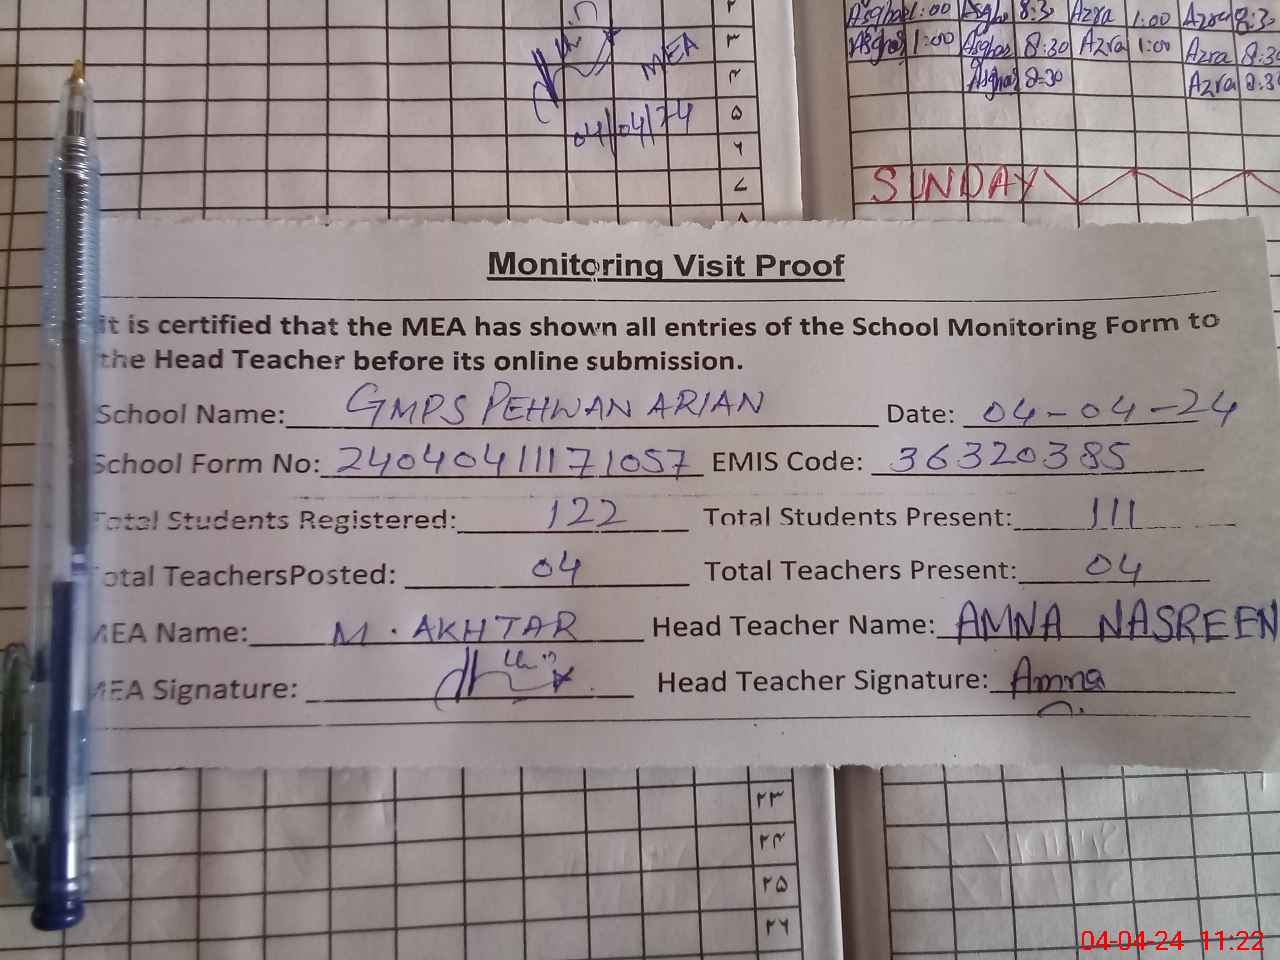 MEA
04/04/24
۲
۳
۴
۵
۶
۷
Asghar 1:00 Asghar 8:30 Azra 1:00 Azra 8:3
Asghar 1:00 Asghar 8:30 Azra 1:00 Azra 8:30
Asghar 8:30 Azra 8:30
SUNDAY
Monitoring Visit Proof
It is certified that the MEA has shown all entries of the School Monitoring Form to
the Head Teacher before its online submission.
School Name: GMPS PEHWAN ARIAN Date: 04-04-24
School Form No: 24040411171057 EMIS Code: 36320385
Total Students Registered: 122 Total Students Present: 111
Total TeachersPosted: 04 Total Teachers Present: 04
MEA Name: M. AKHTAR Head Teacher Name: AMNA NASREEN
MEA Signature: Head Teacher Signature: Amna
۲۳
۲۴
۲۵
۲۶
04-04-24 11:22